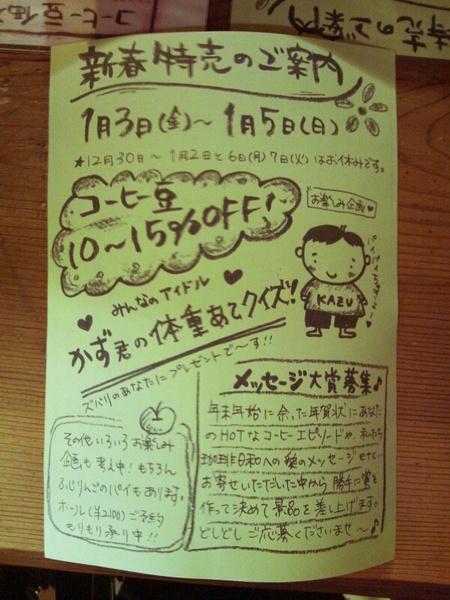 コーヒー豆
特売のご案内
新春特売のご案内
1月3日(金)〜1月5日(日)
★12月30日〜1月2日と6日(月)7日(火)はお休みです。
コーヒー豆
10〜15%OFF!
お楽しみ企画♥
KAZU
みんなのアイドル
♥かず君の体重あてクイズ!
ズバリのあなたにプレゼントで〜す!!
メッセージ大賞募集♪
年末年始に余った年賀状にあなた
のHOTなコーヒーエピソードや、私たち
珈琲日和への愛のメッセージetc…
お寄せいただいた中から勝手に賞を
作って決めて景品を差し上げます。
どしどしご応募くださいませ〜♪
その他いろいろお楽しみ
企画も考え中!もちろん
ふじりんごのパイもあります。
ホール(¥2100)ご予約
もりもり承り中!!